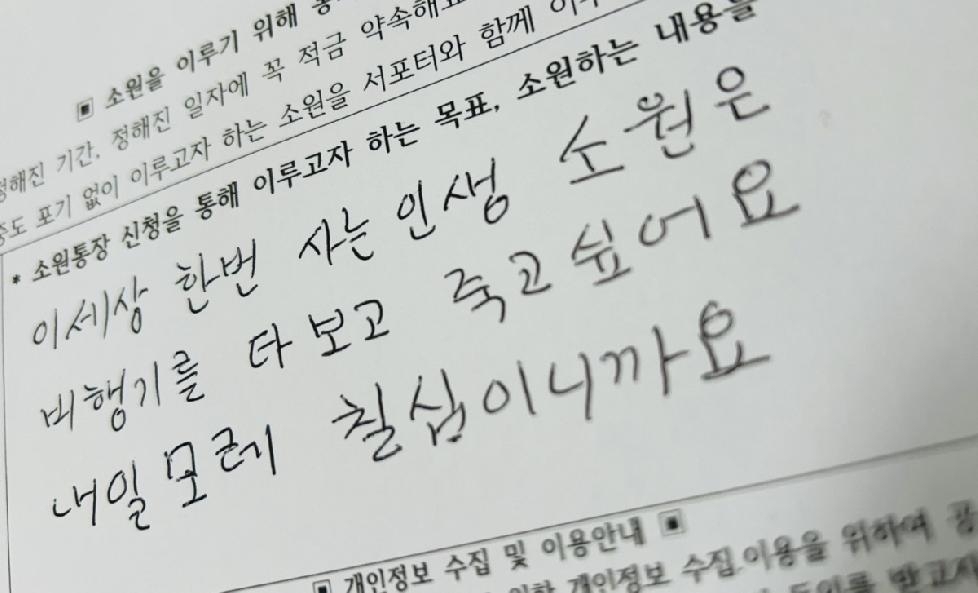 ▣ 소원을 이루기 위해
정해진 기간, 정해진 일자에 꼭 적금 약속해요
중도 포기 없이 이루고자 하는 소원을 서포터와 함께
* 소원통장 신청을 통해 이루고자 하는 목표, 소원하는 내용을
이세상 한번 사는 인생 소원은
비행기를 타 보고 죽고 싶어요
내일 모레 칠십이니까요
▣ 개인정보 수집 및 이용안내 ▣
위한 개인정보 수집.이용을 위하여
동의를 받고자